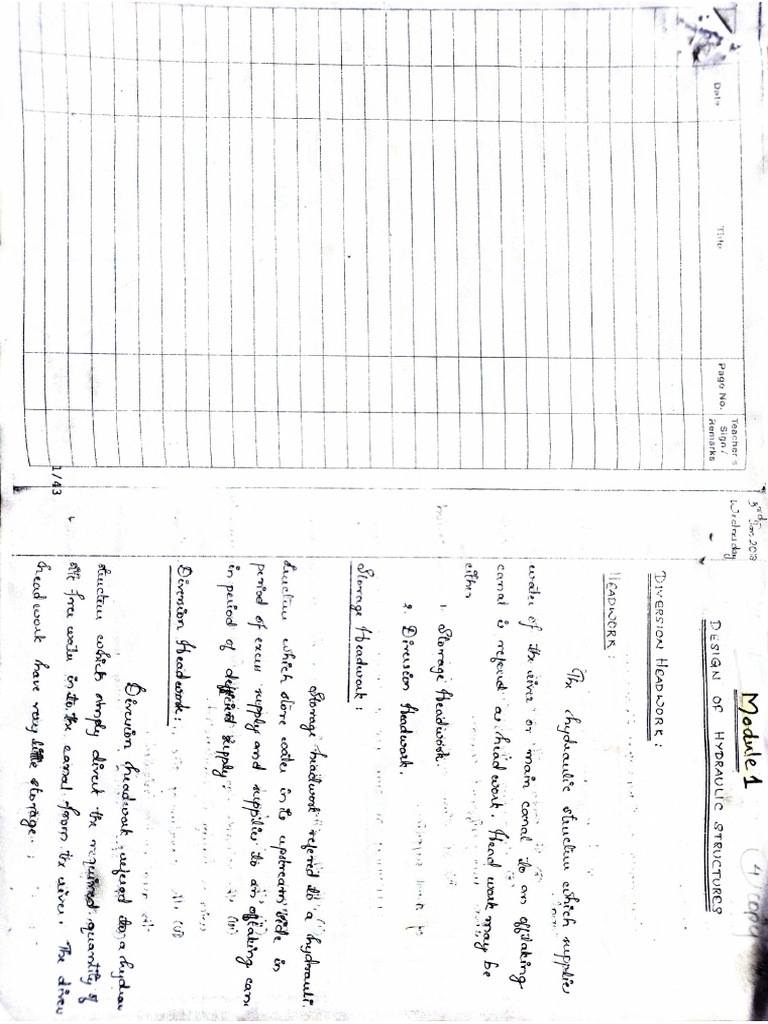 Date
Title
Page No.
Teacher's
Sign /
Remarks
1/43
3rd Jan 2018
Wednesday
Module 1
4) copy
DESIGN OF HYDRAULIC STRUCTURES
DIVERSION HEADWORK :
HEADWORK :
The hydraulic structure which supplies
water of the river or main canal to an offtaking
canal is refered as head work. Head work may be
either
1. Storage Headwork.
2. Diversion Headwork.
Storage Headwork :
Storage headwork refered to a hydrauli
structure which store water in its upstream side in
period of excess supply and supplies to an offtaking can
in period of deficient supply.
Diversion Headwork :
Diversion headwork refered to a hydrau
structure which simply divert the required quantity of
the free water into the canal from the river. The diver
headwork have very little storage.